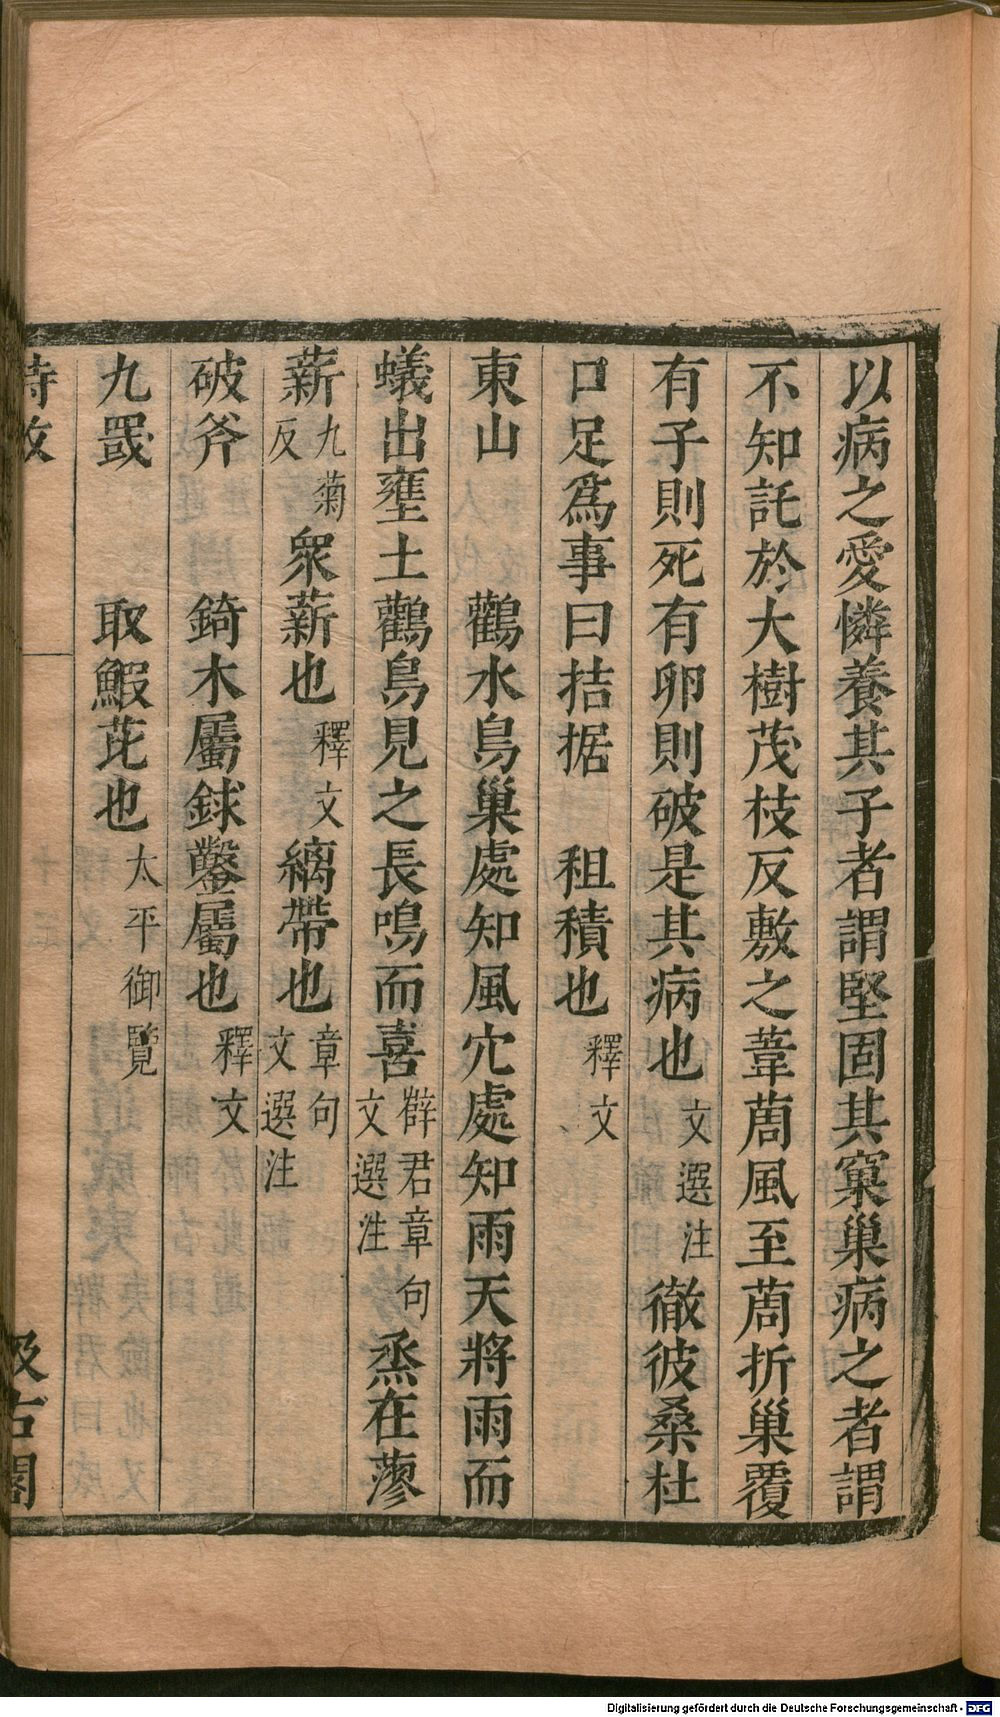 以病之愛憐養其子者謂堅固其窠巢病之者謂
不知託於大樹茂枝反敷之葦䓇風至䓇折巢覆
有子則死有卵則破是其病也文選注徹彼桑杜
口足爲事曰拮据 租積也釋文
東山 鸛水鳥巢處知風穴處知雨天將雨而
蟻出壅土鸛鳥見之長鳴而喜薛君章句文選注烝在蓼
薪九菊反衆薪也釋文縭帶也章句文選注
破斧 錡木屬銶鑿屬也釋文
九罭 取鰕芘也太平御覽
詩攷 汲古閣
Digitalisierung gefördert durch die Deutsche Forschungsgemeinschaft - DFG